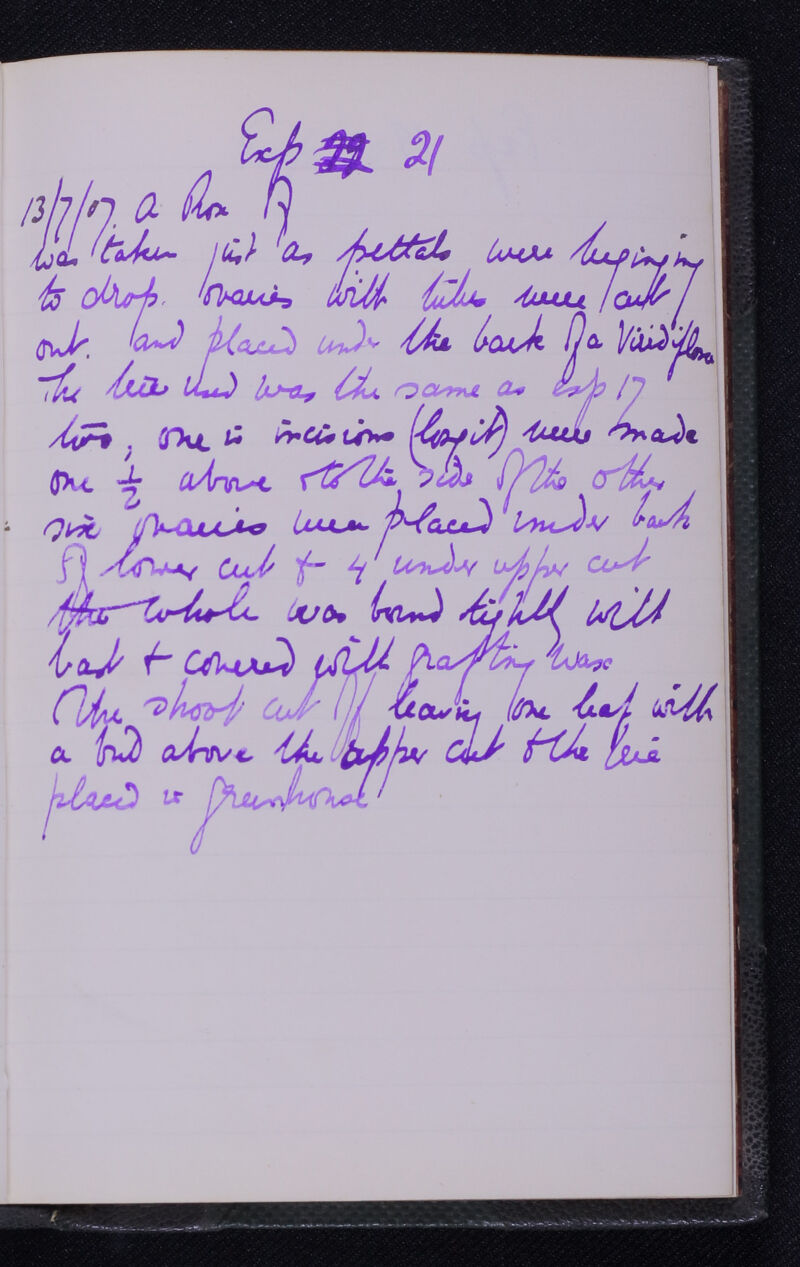 Exp 22 21
13/7/07. A Rose of
was taken just as pettals were begining
to drop. ovaries with tubes were cut
out. and placed under the bark of a Viridiflora
The tree used was the same as exp 17
two, one in incisions (longit) were made
one ½ above & to the side of the other
six ovaries were placed under bark
of lower cut & 4 under upper cut
the whole was bound tightly with
bast & covered with grafting wax
The shoot cut off leaving one leaf with
a bud above the upper cut & the tree
placed in greenhouse